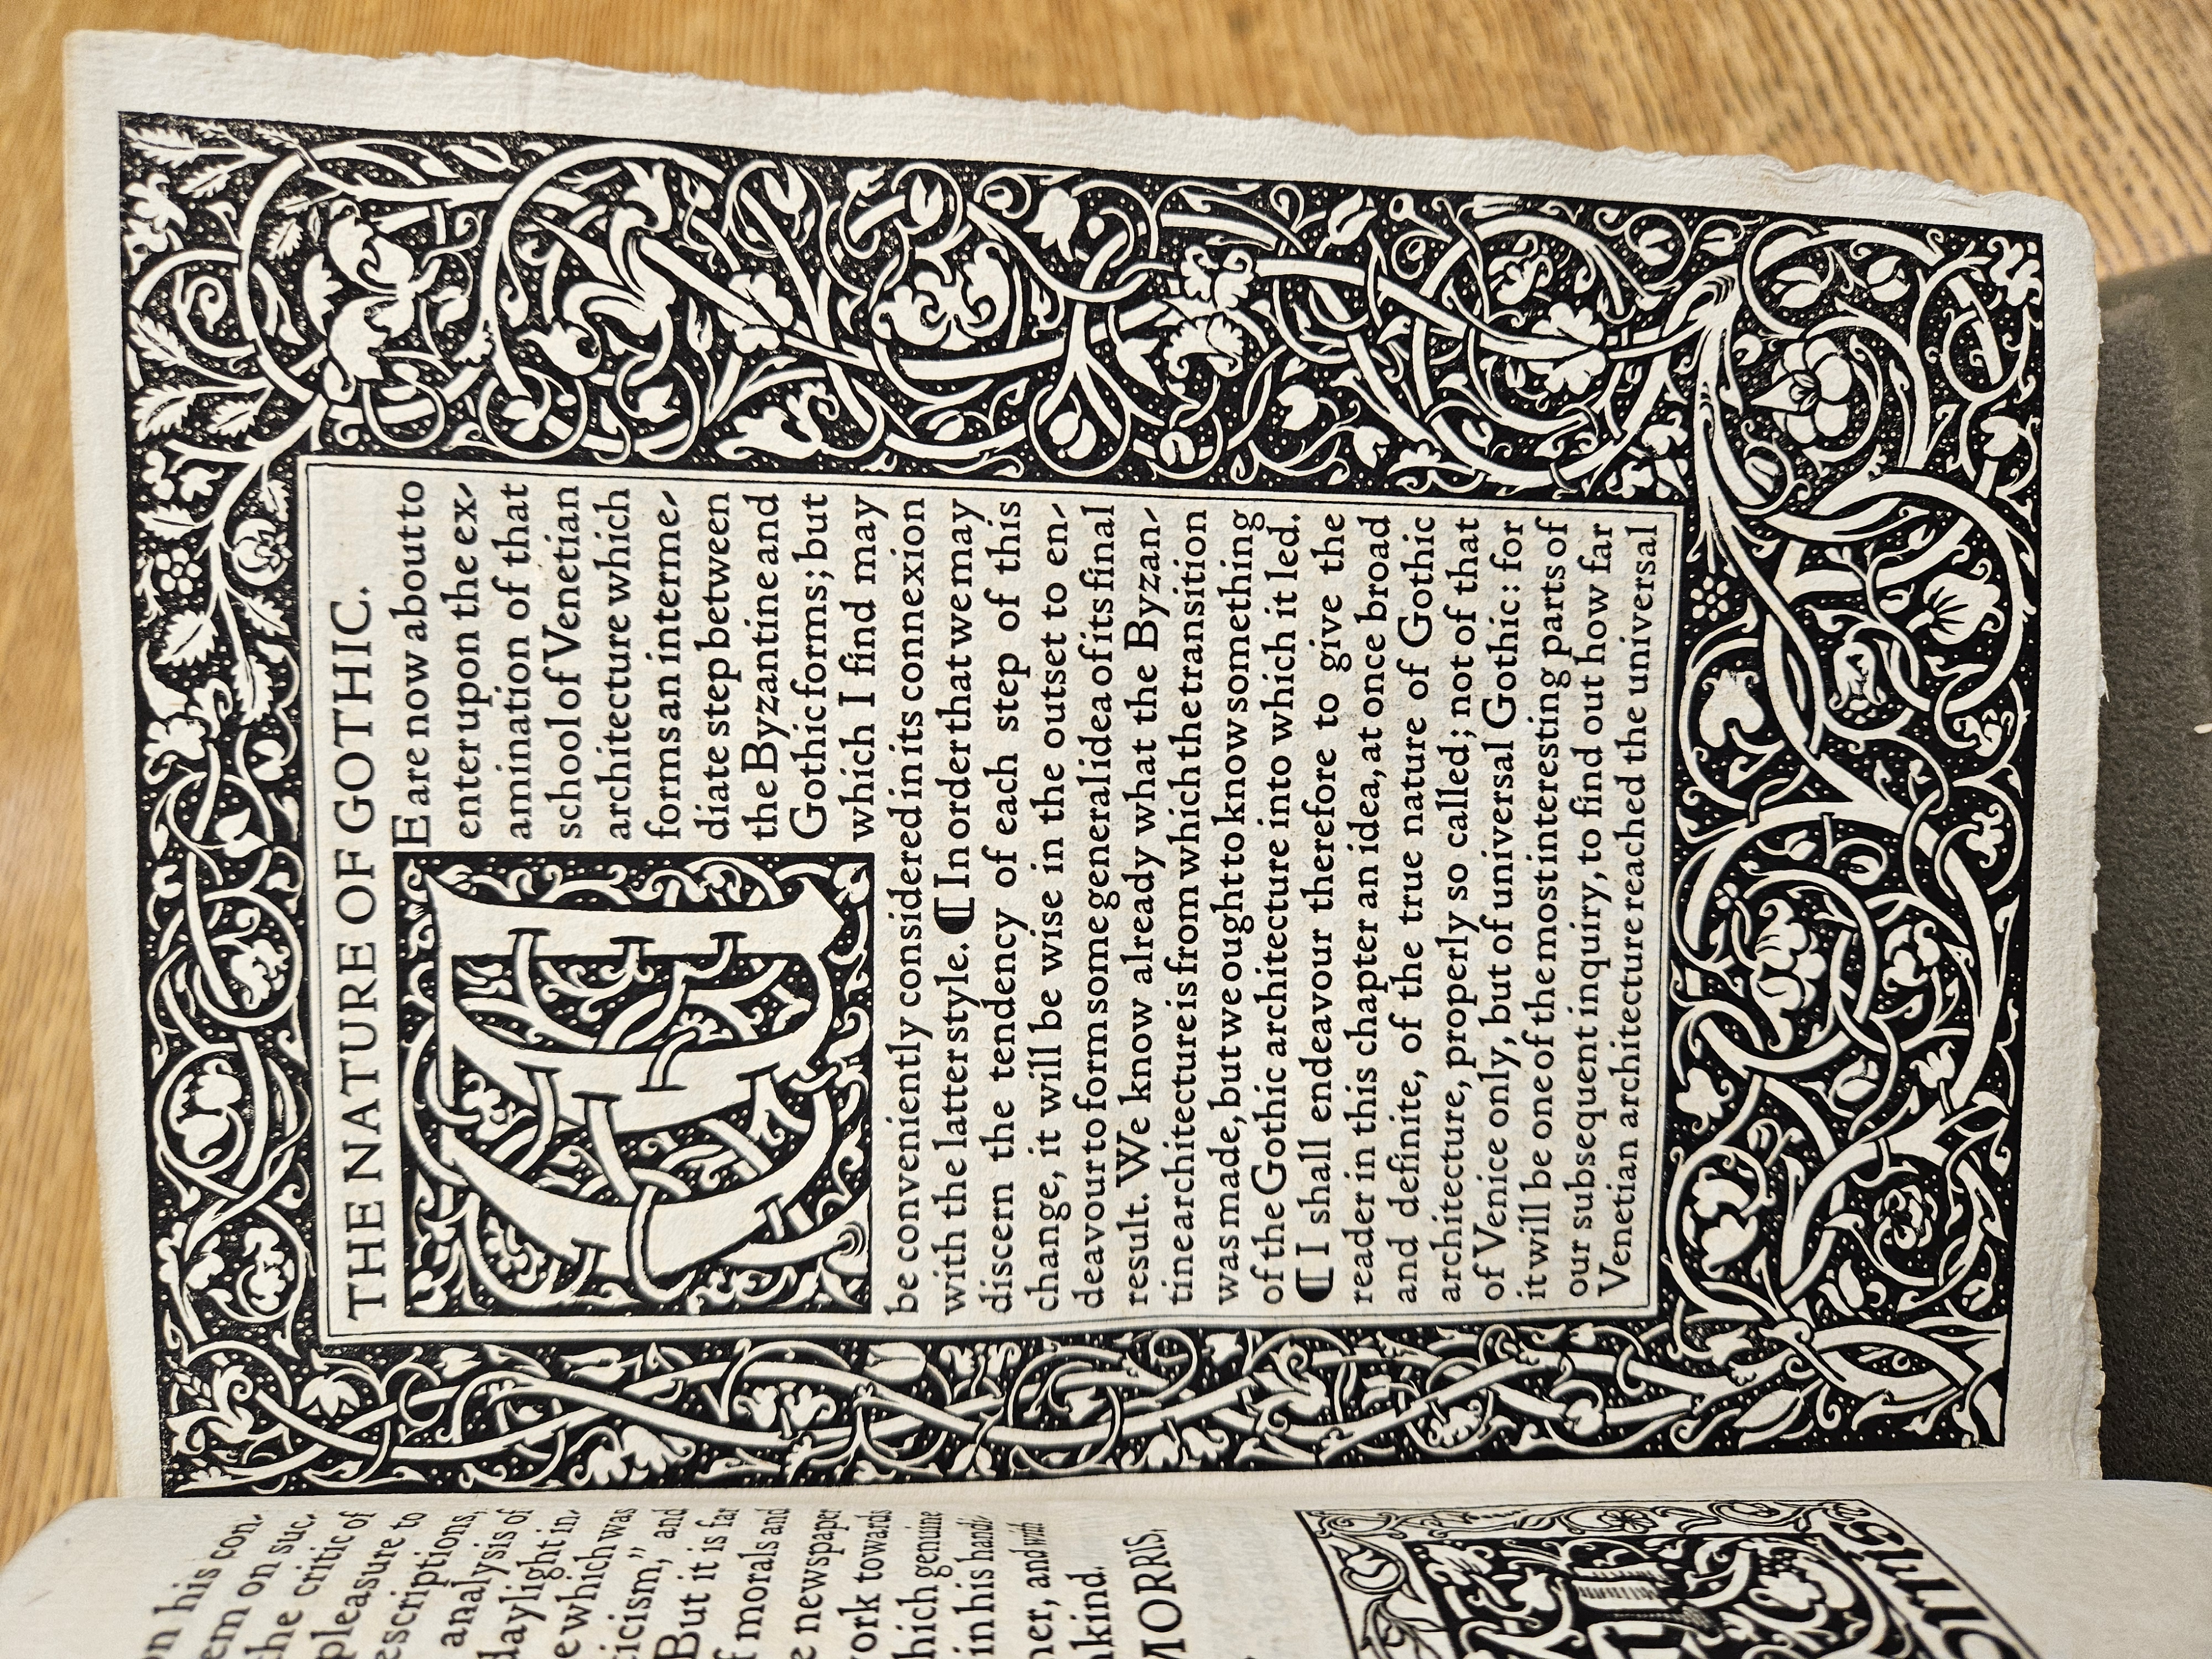 on his con-
em on suc-
the critic of
pleasure to
escriptions,
analysis of
daylight in-
e which was
ticism," and
But it is far
f morals and
e newspaper
work towards
hich genuine
in his handi-
ner, and with
nkind.
MORRIS.
THE NATURE OF GOTHIC.
WE are now about to
enter upon the ex-
amination of that
school of Venetian
architecture which
forms an interme-
diate step between
the Byzantine and
Gothic forms; but
which I find may
be conveniently considered in its connexion
with the latter style. ¶ In order that we may
discern the tendency of each step of this
change, it will be wise in the outset to en-
deavour to form some general idea of its final
result. We know already what the Byzan-
tine architecture is from which the transition
was made, but we ought to know something
of the Gothic architecture into which it led.
¶ I shall endeavour therefore to give the
reader in this chapter an idea, at once broad
and definite, of the true nature of Gothic
architecture, properly so called; not of that
of Venice only, but of universal Gothic: for
it will be one of the most interesting parts of
our subsequent inquiry, to find out how far
Venetian architecture reached the universal